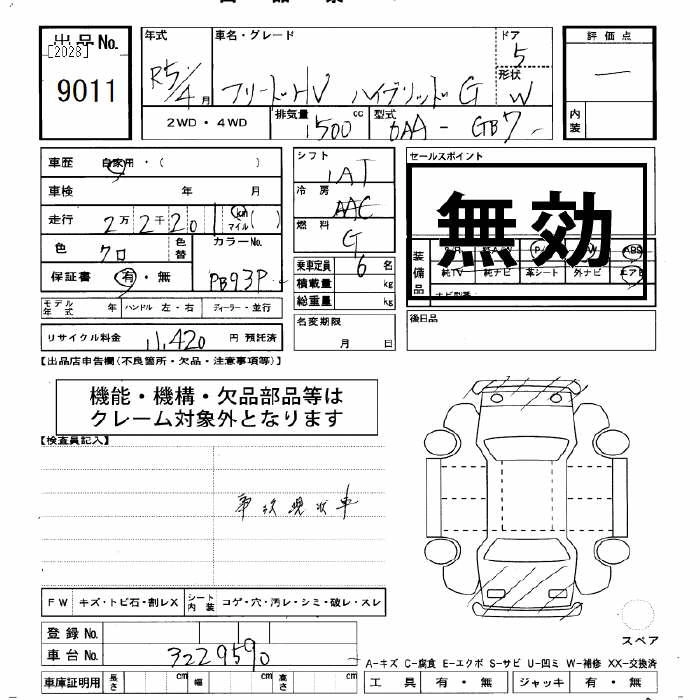 出品No.
[2028]
9011
年式
R5/4月
車名・グレード
フリードHV ハイブリッドG
ドア
5
形状
W
評価点
一
内装
2WD・4WD
排気量
1500cc
型式
6AA-GB7
車歴 自家用・( )
車検 年 月
走行 2万2千201 km マイル( )
色 クロ
色替
カラーNo.
PB93P
保証書 有・無
モデル年式 年 ハンドル 左・右 ディーラー・並行
リサイクル料金 11,420 円 預託済
シフト
IAT
冷房
AAC
燃料
G
乗車定員 6名
積載量 kg
総重量 kg
名変期限
月 日
セールスポイント
無効
装備品
ABS
純TV 純ナビ 革シート 外ナビ エアB
後日品
【出品店申告欄(不良箇所・欠品・注意事項等)】
機能・機構・欠品部品等は
クレーム対象外となります
【検査員記入】
事故現状車
FW キズ・トビ石・割レX
シート内装 コゲ・穴・汚レ・シミ・破レ・スレ
登録No.
車台No. 3229590
車庫証明用 長さ cm 幅 cm 高さ cm
スペア
A-キズ C-腐食 E-エクボ S-サビ U-凹ミ W-補修 XX-交換済
工具 有・無 ジャッキ 有・無